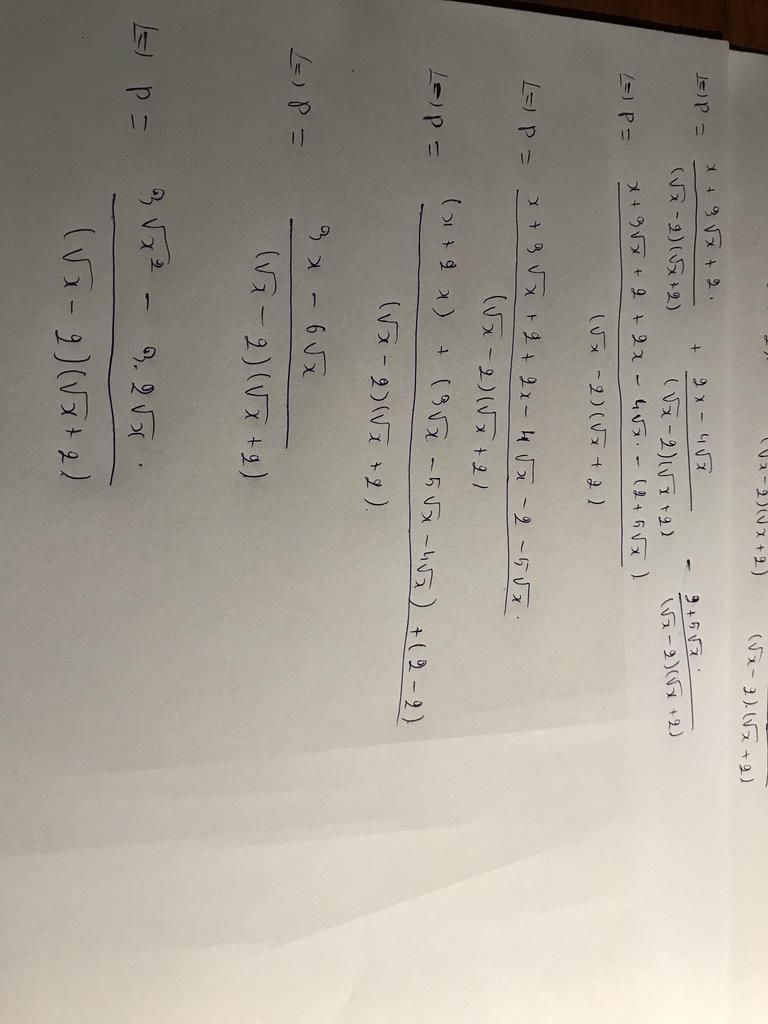 (√x - 2)(√x + 2) (√x - 2)(√x + 2)
<=> P = (x + 3√x + 2)/((√x - 2)(√x + 2)) + (2x - 4√x)/((√x - 2)(√x + 2)) - (2 + 5√x)/((√x - 2)(√x + 2))
<=> P = (x + 3√x + 2 + 2x - 4√x - (2 + 5√x))/((√x - 2)(√x + 2))
<=> P = (x + 3√x + 2 + 2x - 4√x - 2 - 5√x)/((√x - 2)(√x + 2))
<=> P = ((x + 2x) + (3√x - 5√x - 4√x) + (2 - 2))/((√x - 2)(√x + 2))
<=> P = (3x - 6√x)/((√x - 2)(√x + 2))
<=> P = (3√x² - 3.2√x)/((√x - 2)(√x + 2))